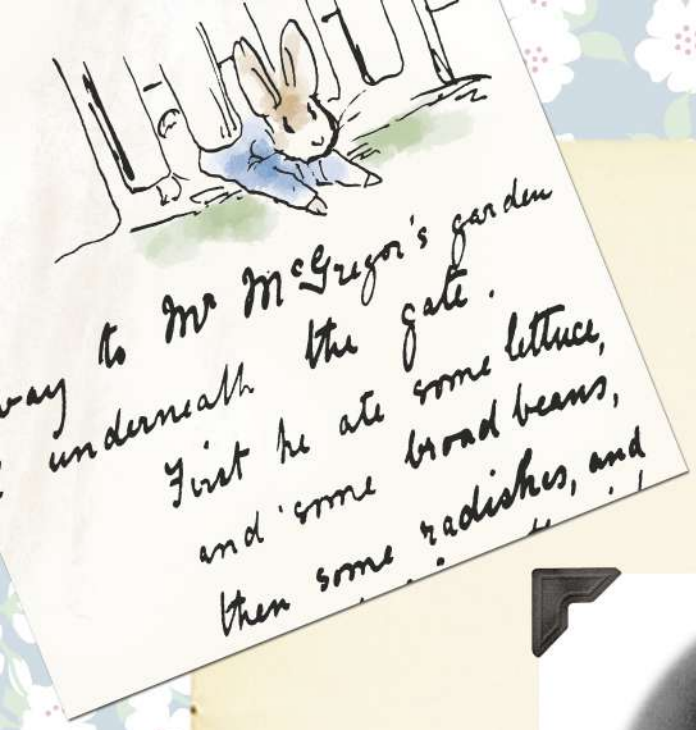 way to Mr McGregor's garden
underneath the gate.
First he ate some lettuce,
and some broad beans,
then some radishes, and